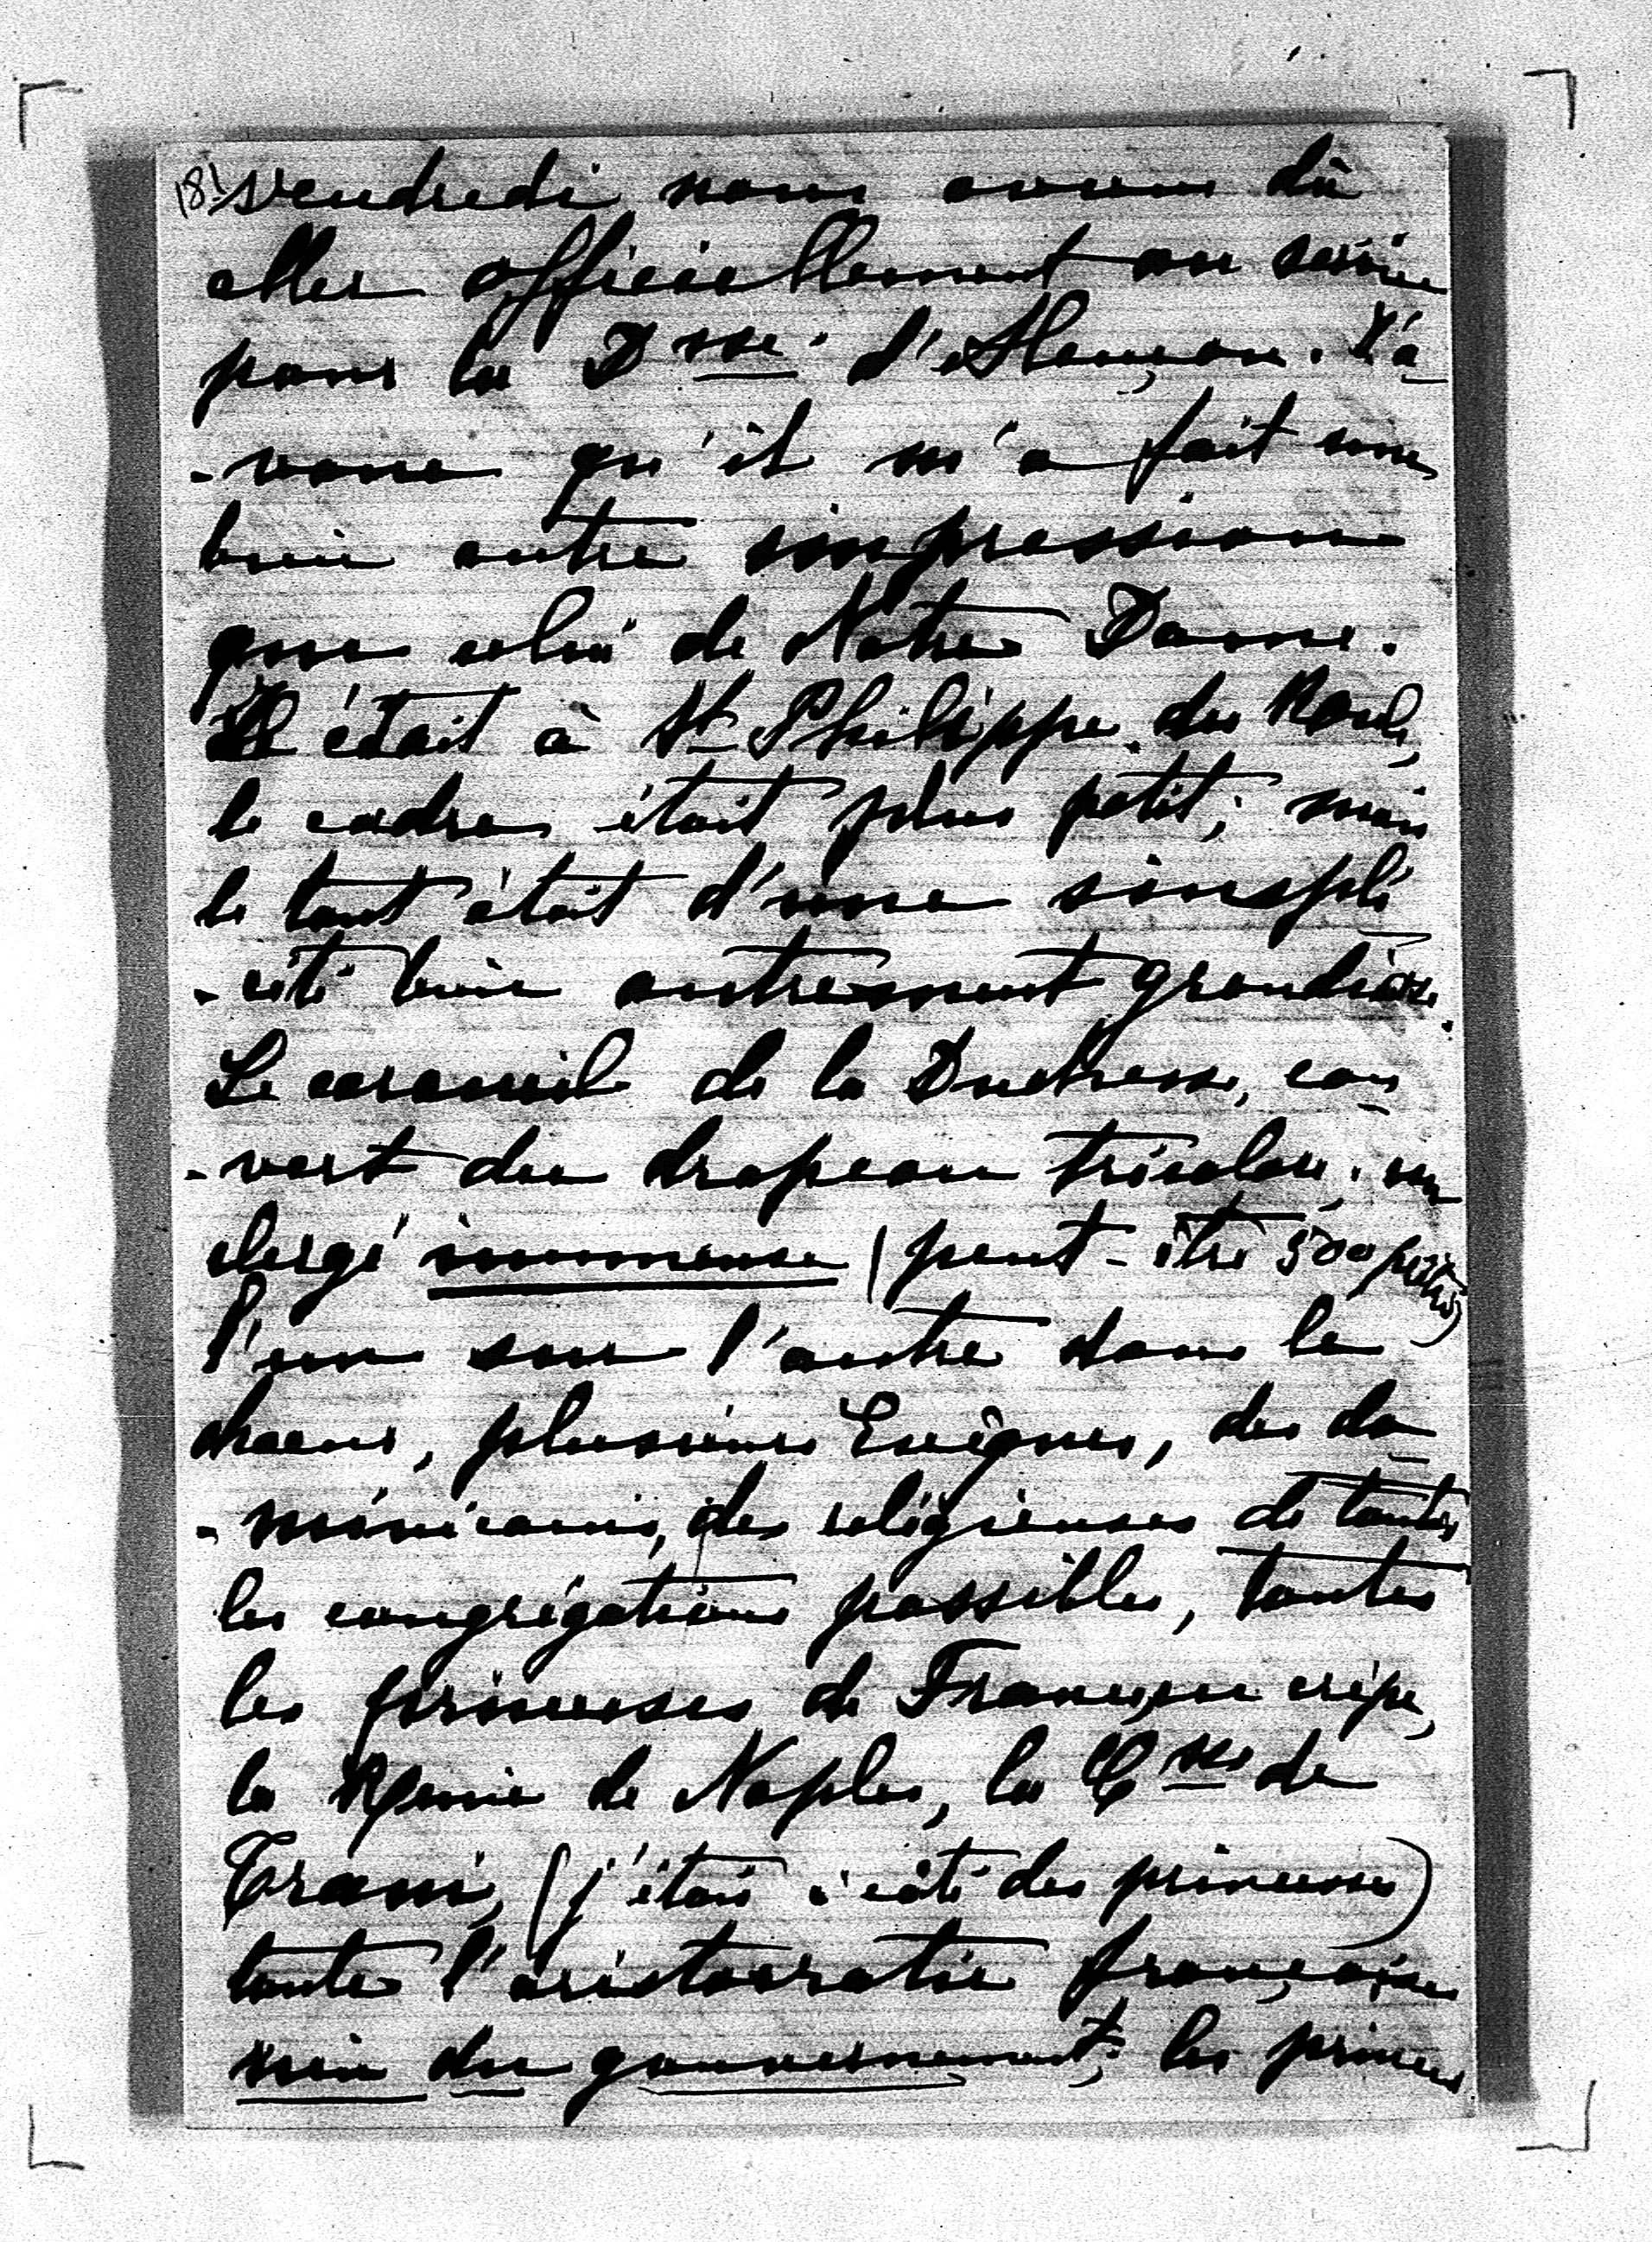 18) vendredi nous avons dû
aller officiellement au service
pour la Dsse. d'Alençon. J'a
-voue qu'il m'a fait une
bien autre impression
que celui de Notre Dame.
Il était à St Philippe du Roule,
le cadre était plus petit; mais
le tout était d'une simpli
-cité bien autrement grandiose.
Le cercueil de la Duchesse, cou
-vert du drapeau tricolore, un
clergé immense (peut-être 500 prêtres)
l'un sur l'autre dans le
choeur, plusieurs Evêques, des do
-minicains, des religieuses de toutes
les congrégations possibles, toutes
les princesses de France, en crêpe,
la Reine de Naples, la Csse de
Trani, (j'étais à côté des princesses)
toute l'aristocratie française
rien du gouvernement; les princes